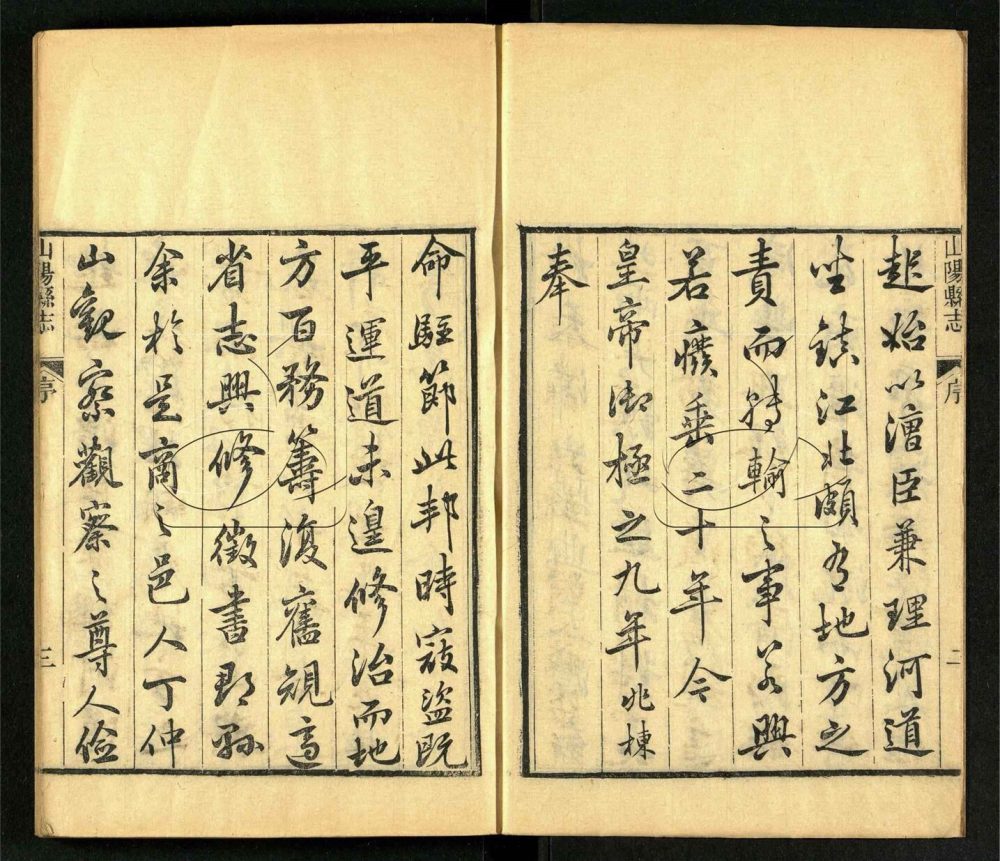 山陽縣志 序 二
起始以漕臣兼理河道
坐鎮江北頗有地方之
責而轉輸之事若興
若癈垂二十年今
皇帝御極之九年兆棟
奉
命駐節此邦時寇盜既
平運道未遑修治而地
方百務籌復舊規適
省志興修徵書郡縣
余於是商之邑人丁仲
山觀察觀察之尊人儉
山陽縣志 序 三